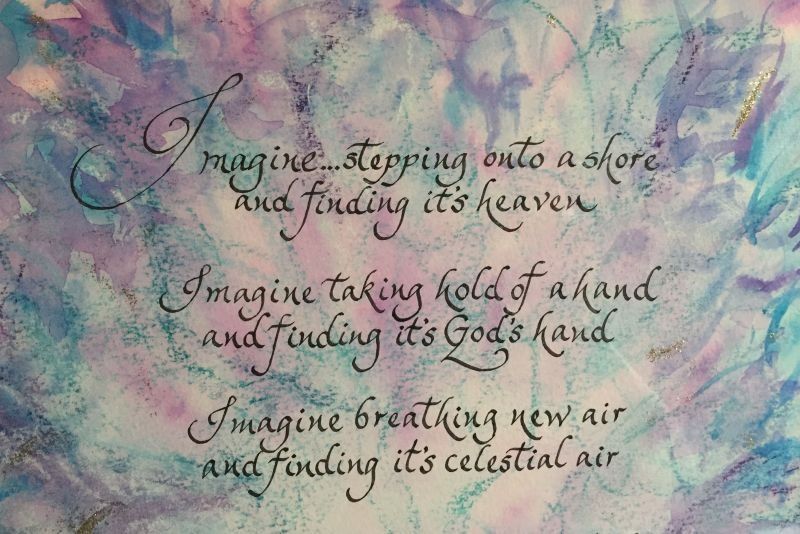 Imagine...stepping onto a shore
and finding it's heaven
Imagine taking hold of a hand
and finding it's God's hand
Imagine breathing new air
and finding it's celestial air